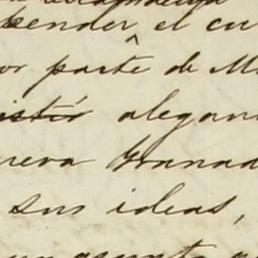 pender el cu
or parte de M
istió alegan
ueva Granad
sus ideas,
un asunto